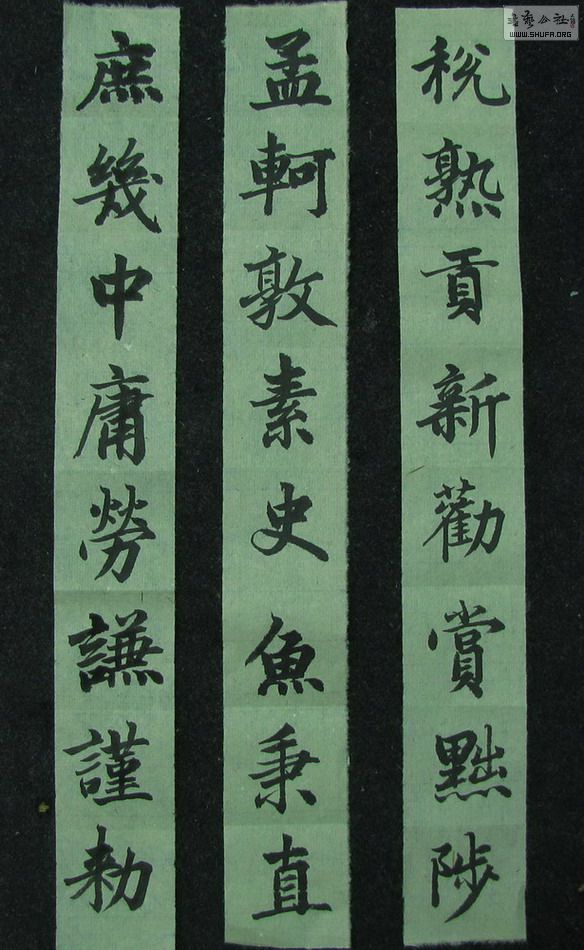 稅熟貢新勸賞黜陟
孟軻敦素史魚秉直
庶幾中庸勞謙謹敕
WWW.SHUFA.ORG